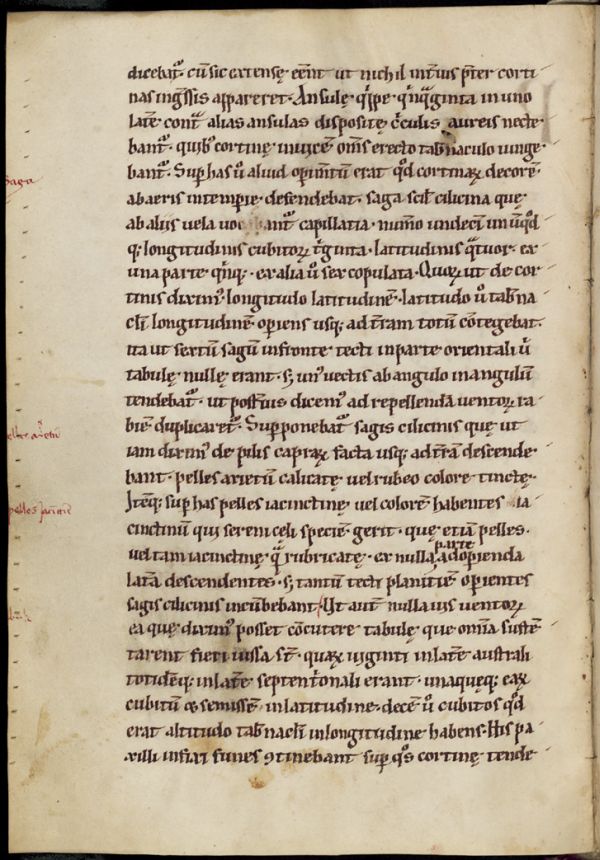 dicebat᷑. cū sic extensę eēnt ut nichil int᷑ius p̄ter corti
nas ing̅ssis appareret. Ansulę q̇ppe q̇nq̄ginta in uno
lat̄e cont̄ alias ansulas dispositę ċculis aureis necte
bant᷑. quib᷒ cortinę inuicē om̄s erecto tab̄naculo iunge
bant᷑. Sup has u̅ aliud opim̅tū erat qd̄ cortinaꝝ decorē
ab aeris intemperie defendebat. saga scil̅ cilicina quę
ab aliis uela uocant᷑ capillatia. num̅o undecī un̅ uq̄d
q; longitudinis cubitoꝝ ṫginta. latitudinis q̄tuor. ex
una parte q̇nq;. ex alia u̅ sex copulata. Quoꝝ ut de cor
tinis dixim᷒ longitudo latitudinē. latitudo u̅ tab̄na
cl̅i longitudinē operiens usq; ad t̅ram totū cōtegebat.
ita ut sextū sagū in fronte tecti in parte orientali u̅
tabulę nullę erant. s; un᷒ uectis ab angulo in angulū
tendebat᷑. ut post̅ius dicem᷒ ad repellendā uentoꝝ ra
biē duplicaret᷑. Supponebat᷑ sagis cilicinis quę ut
iam dixim᷒ de pilis capraꝝ facta usq; ad t̅rā descende
bant. pelles arietum calicatę uel rubeo colore tinctę.
Iteq; sup has pelles iacinctinę uel colorē habentes ia
cinctinū qui serem cęli speciē gerit. quę etiā pelles.
uel tam iacinctinę q̄ rubricatę. ex nulla parte ad opienda
lat̄a descendentes. s; tantū tecti planitiē operientes
sagis cilicinis incūbebant. Ut aut̅ nulla uis uentoꝝ
ea quę dixim᷒ posset cōcutere tabulę que om̅ia susten
tarent fieri iussa s̅t. quaꝝ uiginti in lat̄e australi
totidēq; in lat̄e septenṫonali erant. unaquęq; eaꝝ
cubitum & semissē in latitudine. decē u̅ cubitos qd̄
erat altitudo tab̄nacl̅i in longitudine habens. His pa
xilli infixi funes ꝯtinebant sup q̊s cortinę tende
Saga
pelles ariētū
pelles iacinctinę